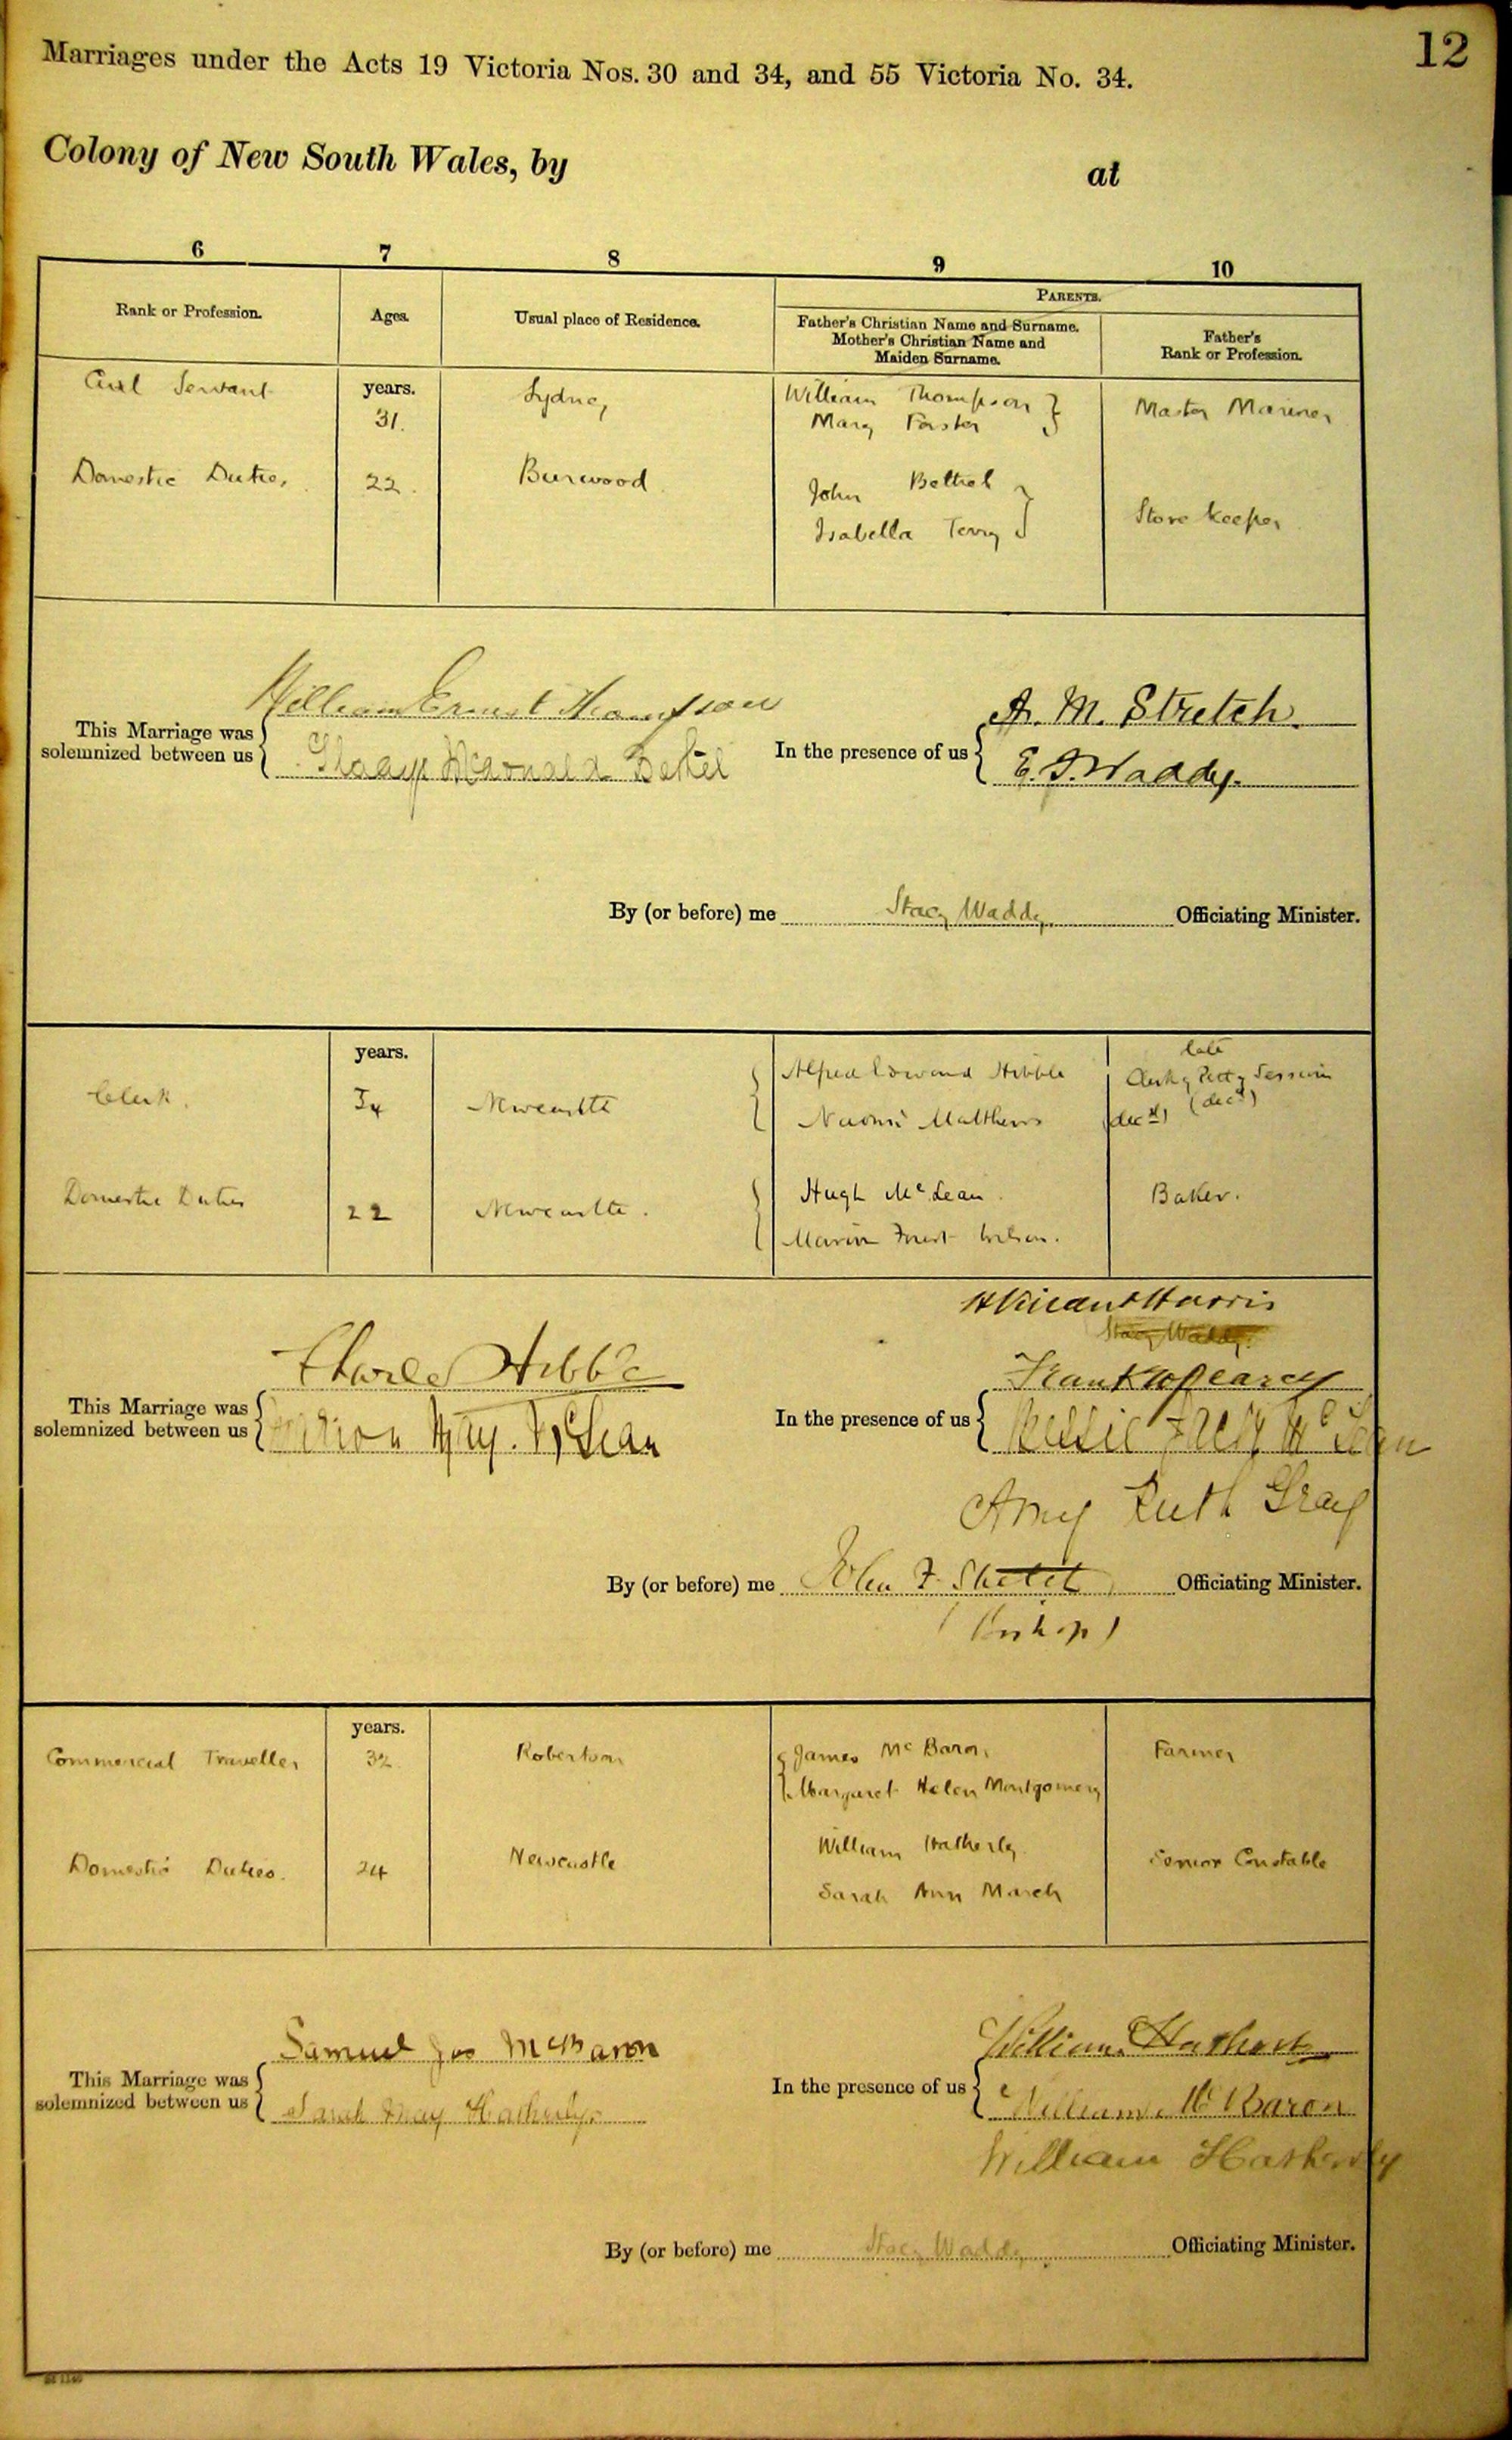 12
Marriages under the Acts 19 Victoria Nos. 30 and 34, and 55 Victoria No. 34.
Colony of New South Wales, by at
6 7 8 9 10
Rank or Profession. Ages. Usual place of Residence. PARENTS.
Father's Christian Name and Surname. Mother's Christian Name and Maiden Surname. Father's Rank or Profession.
Civil Servant years. 31. Sydney William Thompson Master Mariner
Mary Forster
Domestic Duties 22. Burwood John Bethel Store keeper
Isabella Terry
William Ernest Thompson A. M. Stretch.
This Marriage was solemnized between us In the presence of us
Gladys McDonald Bethel E. J. Waddy.
By (or before) me Stacy Waddy. Officiating Minister.
years. late
Clerk. 34 Newcastle Alfred Edward Hibble Clerk of Petty Session (decd)
Naomi Matthews (decd)
Domestic Duties 22 Newcastle. Hugh McLean. Baker.
Marion Forest Wilson.
H Vincent Harris
Stacy Waddy.
Charles Hibble Frank W Pearcy
This Marriage was solemnized between us In the presence of us
Marion May. McLean McLean
Amy Ruth Gray
By (or before) me John F. Stretch Officiating Minister.
(Bishop)
years.
Commercial Traveller 32 Robertson James McBaron Farmer
Margaret Helen Montgomery
Domestic Duties. 24 Newcastle William Hatherly Senior Constable
Sarah Ann March
Samuel Jas McBaron William Hatherly
This Marriage was solemnized between us In the presence of us
Sarah May Hatherly. William McBaron
William Hatherly
By (or before) me Stacy Waddy Officiating Minister.